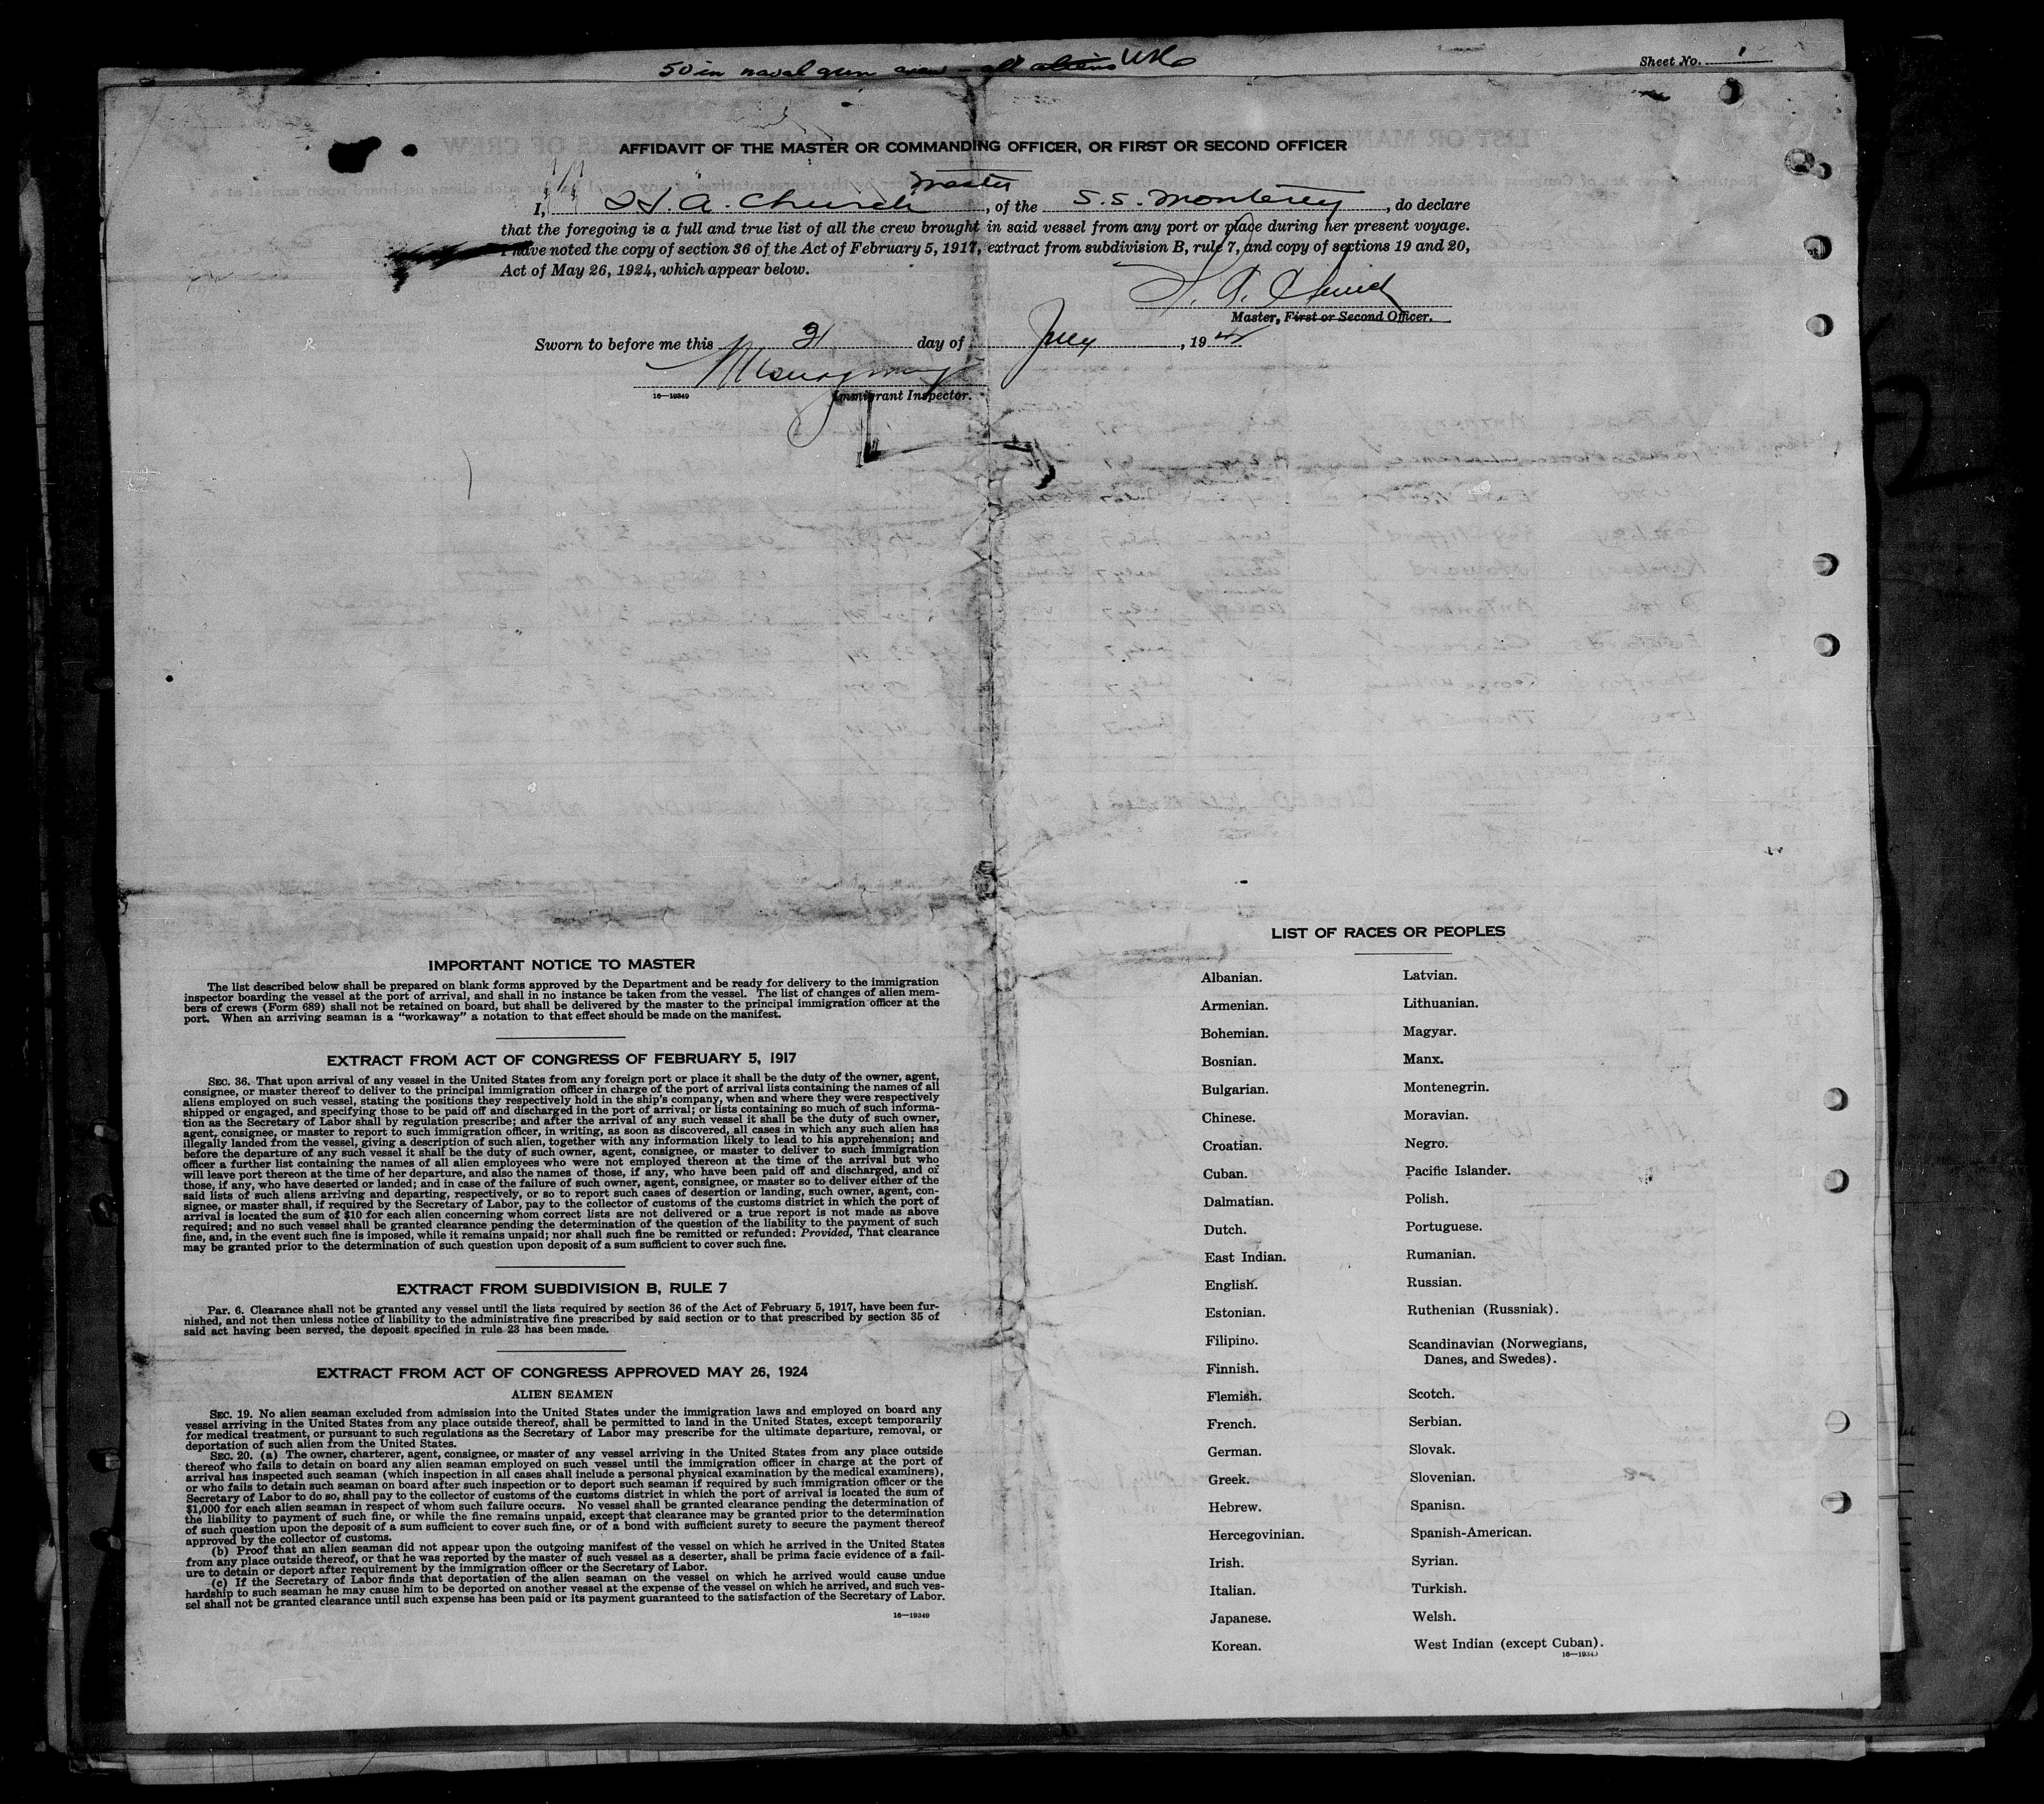 50 in naval gun crew - all aliens
Sheet No. 1
AFFIDAVIT OF THE MASTER OR COMMANDING OFFICER, OR FIRST OR SECOND OFFICER
Master
I, H. A. Church, of the S.S. Monterey, do declare
that the foregoing is a full and true list of all the crew brought in said vessel from any port or place during her present voyage.
I have noted the copy of section 36 of the Act of February 5, 1917, extract from subdivision B, rule 7, and copy of sections 19 and 20,
Act of May 26, 1924, which appear below.
H. A. Church
Master, First or Second Officer.
Sworn to before me this 21 day of July, 19
16—19349 Immigrant Inspector.
IMPORTANT NOTICE TO MASTER
The list described below shall be prepared on blank forms approved by the Department and be ready for delivery to the immigration
inspector boarding the vessel at the port of arrival, and shall in no instance be taken from the vessel. The list of changes of alien mem-
bers of crews (Form 689) shall not be retained on board, but shall be delivered by the master to the principal immigration officer at the
port. When an arriving seaman is a "workaway" a notation to that effect should be made on the manifest.
EXTRACT FROM ACT OF CONGRESS OF FEBRUARY 5, 1917
SEC. 36. That upon arrival of any vessel in the United States from any foreign port or place it shall be the duty of the owner, agent,
consignee, or master thereof to deliver to the principal immigration officer in charge of the port of arrival lists containing the names of all
aliens employed on such vessel, stating the positions they respectively hold in the ship's company, when and where they were respectively
shipped or engaged, and specifying those to be paid off and discharged in the port of arrival; or lists containing so much of such informa-
tion as the Secretary of Labor shall by regulation prescribe; and after the arrival of any such vessel it shall be the duty of such owner,
agent, consignee, or master to report to such immigration officer, in writing, as soon as discovered, all cases in which any such alien has
illegally landed from the vessel, giving a description of such alien, together with any information likely to lead to his apprehension; and
before the departure of any such vessel it shall be the duty of such owner, agent, consignee, or master to deliver to such immigration
officer a further list containing the names of all alien employees who were not employed thereon at the time of the arrival but who
will leave port thereon at the time of her departure, and also the names of those, if any, who have been paid off and discharged, and of
those, if any, who have deserted or landed; and in case of the failure of such owner, agent, consignee, or master so to deliver either of the
said lists of such aliens arriving and departing, respectively, or so to report such cases of desertion or landing, such owner, agent, con-
signee, or master shall, if required by the Secretary of Labor, pay to the collector of customs of the customs district in which the port of
arrival is located the sum of $10 for each alien concerning whom correct lists are not delivered or a true report is not made as above
required; and no such vessel shall be granted clearance pending the determination of the question of the liability to the payment of such
fine, and, in the event such fine is imposed, while it remains unpaid; nor shall such fine be remitted or refunded: Provided, That clearance
may be granted prior to the determination of such question upon deposit of a sum sufficient to cover such fine.
EXTRACT FROM SUBDIVISION B, RULE 7
Par. 6. Clearance shall not be granted any vessel until the lists required by section 36 of the Act of February 5, 1917, have been fur-
nished, and not then unless notice of liability to the administrative fine prescribed by said section or to that prescribed by section 35 of
said act having been served, the deposit specified in rule 23 has been made.
EXTRACT FROM ACT OF CONGRESS APPROVED MAY 26, 1924
ALIEN SEAMEN
SEC. 19. No alien seaman excluded from admission into the United States under the immigration laws and employed on board any
vessel arriving in the United States from any place outside thereof, shall be permitted to land in the United States, except temporarily
for medical treatment, or pursuant to such regulations as the Secretary of Labor may prescribe for the ultimate departure, removal, or
deportation of such alien from the United States.
SEC. 20. (a) The owner, charterer, agent, consignee, or master of any vessel arriving in the United States from any place outside
thereof who fails to detain on board any alien seaman employed on such vessel until the immigration officer in charge at the port of
arrival has inspected such seaman (which inspection in all cases shall include a personal physical examination by the medical examiners),
or who fails to detain such seaman on board after such inspection or to deport such seaman if required by such immigration officer or the
Secretary of Labor to do so, shall pay to the collector of customs of the customs district in which the port of arrival is located the sum of
$1,000 for each alien seaman in respect of whom such failure occurs. No vessel shall be granted clearance pending the determination of
the liability to payment of such fine, or while the fine remains unpaid, except that clearance may be granted prior to the determination
of such question upon the deposit of a sum sufficient to cover such fine, or of a bond with sufficient surety to secure the payment thereof
approved by the collector of customs.
(b) Proof that an alien seaman did not appear upon the outgoing manifest of the vessel on which he arrived in the United States
from any place outside thereof, or that he was reported by the master of such vessel as a deserter, shall be prima facie evidence of a fail-
ure to detain or deport after requirement by the immigration officer or the Secretary of Labor.
(c) If the Secretary of Labor finds that deportation of the alien seaman on the vessel on which he arrived would cause undue
hardship to such seaman he may cause him to be deported on another vessel at the expense of the vessel on which he arrived, and such ves-
sel shall not be granted clearance until such expense has been paid or its payment guaranteed to the satisfaction of the Secretary of Labor.
16—19349
LIST OF RACES OR PEOPLES
Albanian.
Armenian.
Bohemian.
Bosnian.
Bulgarian.
Chinese.
Croatian.
Cuban.
Dalmatian.
Dutch.
East Indian.
English.
Estonian.
Filipino.
Finnish.
Flemish.
French.
German.
Greek.
Hebrew.
Hercegovinian.
Irish.
Italian.
Japanese.
Korean.
Latvian.
Lithuanian.
Magyar.
Manx.
Montenegrin.
Moravian.
Negro.
Pacific Islander.
Polish.
Portuguese.
Rumanian.
Russian.
Ruthenian (Russniak).
Scandinavian (Norwegians,
Danes, and Swedes).
Scotch.
Serbian.
Slovak.
Slovenian.
Spanish.
Spanish-American.
Syrian.
Turkish.
Welsh.
West Indian (except Cuban).
16—19349